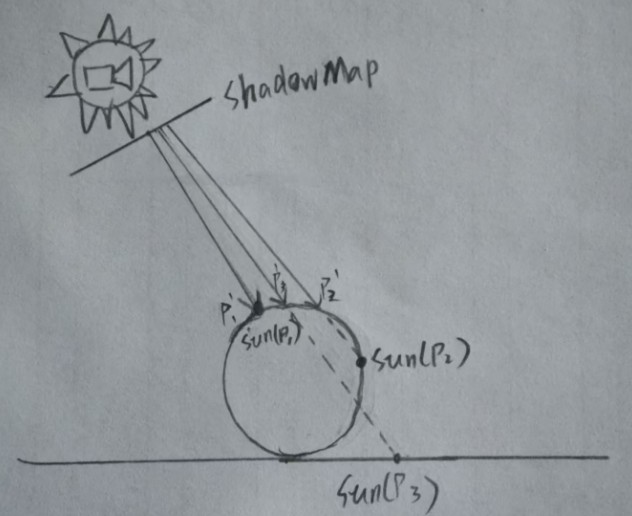 ShadowMap
P₁'
P₃'
P₂'
Sun(P₁)
Sun(P₂)
Sun(P₃)